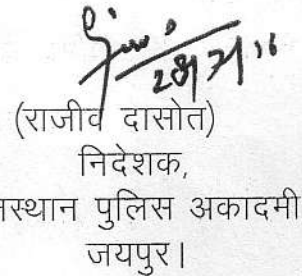 28/7/16
(राजीव दासोत)
निदेशक,
जस्थान पुलिस अकादमी
जयपुर।